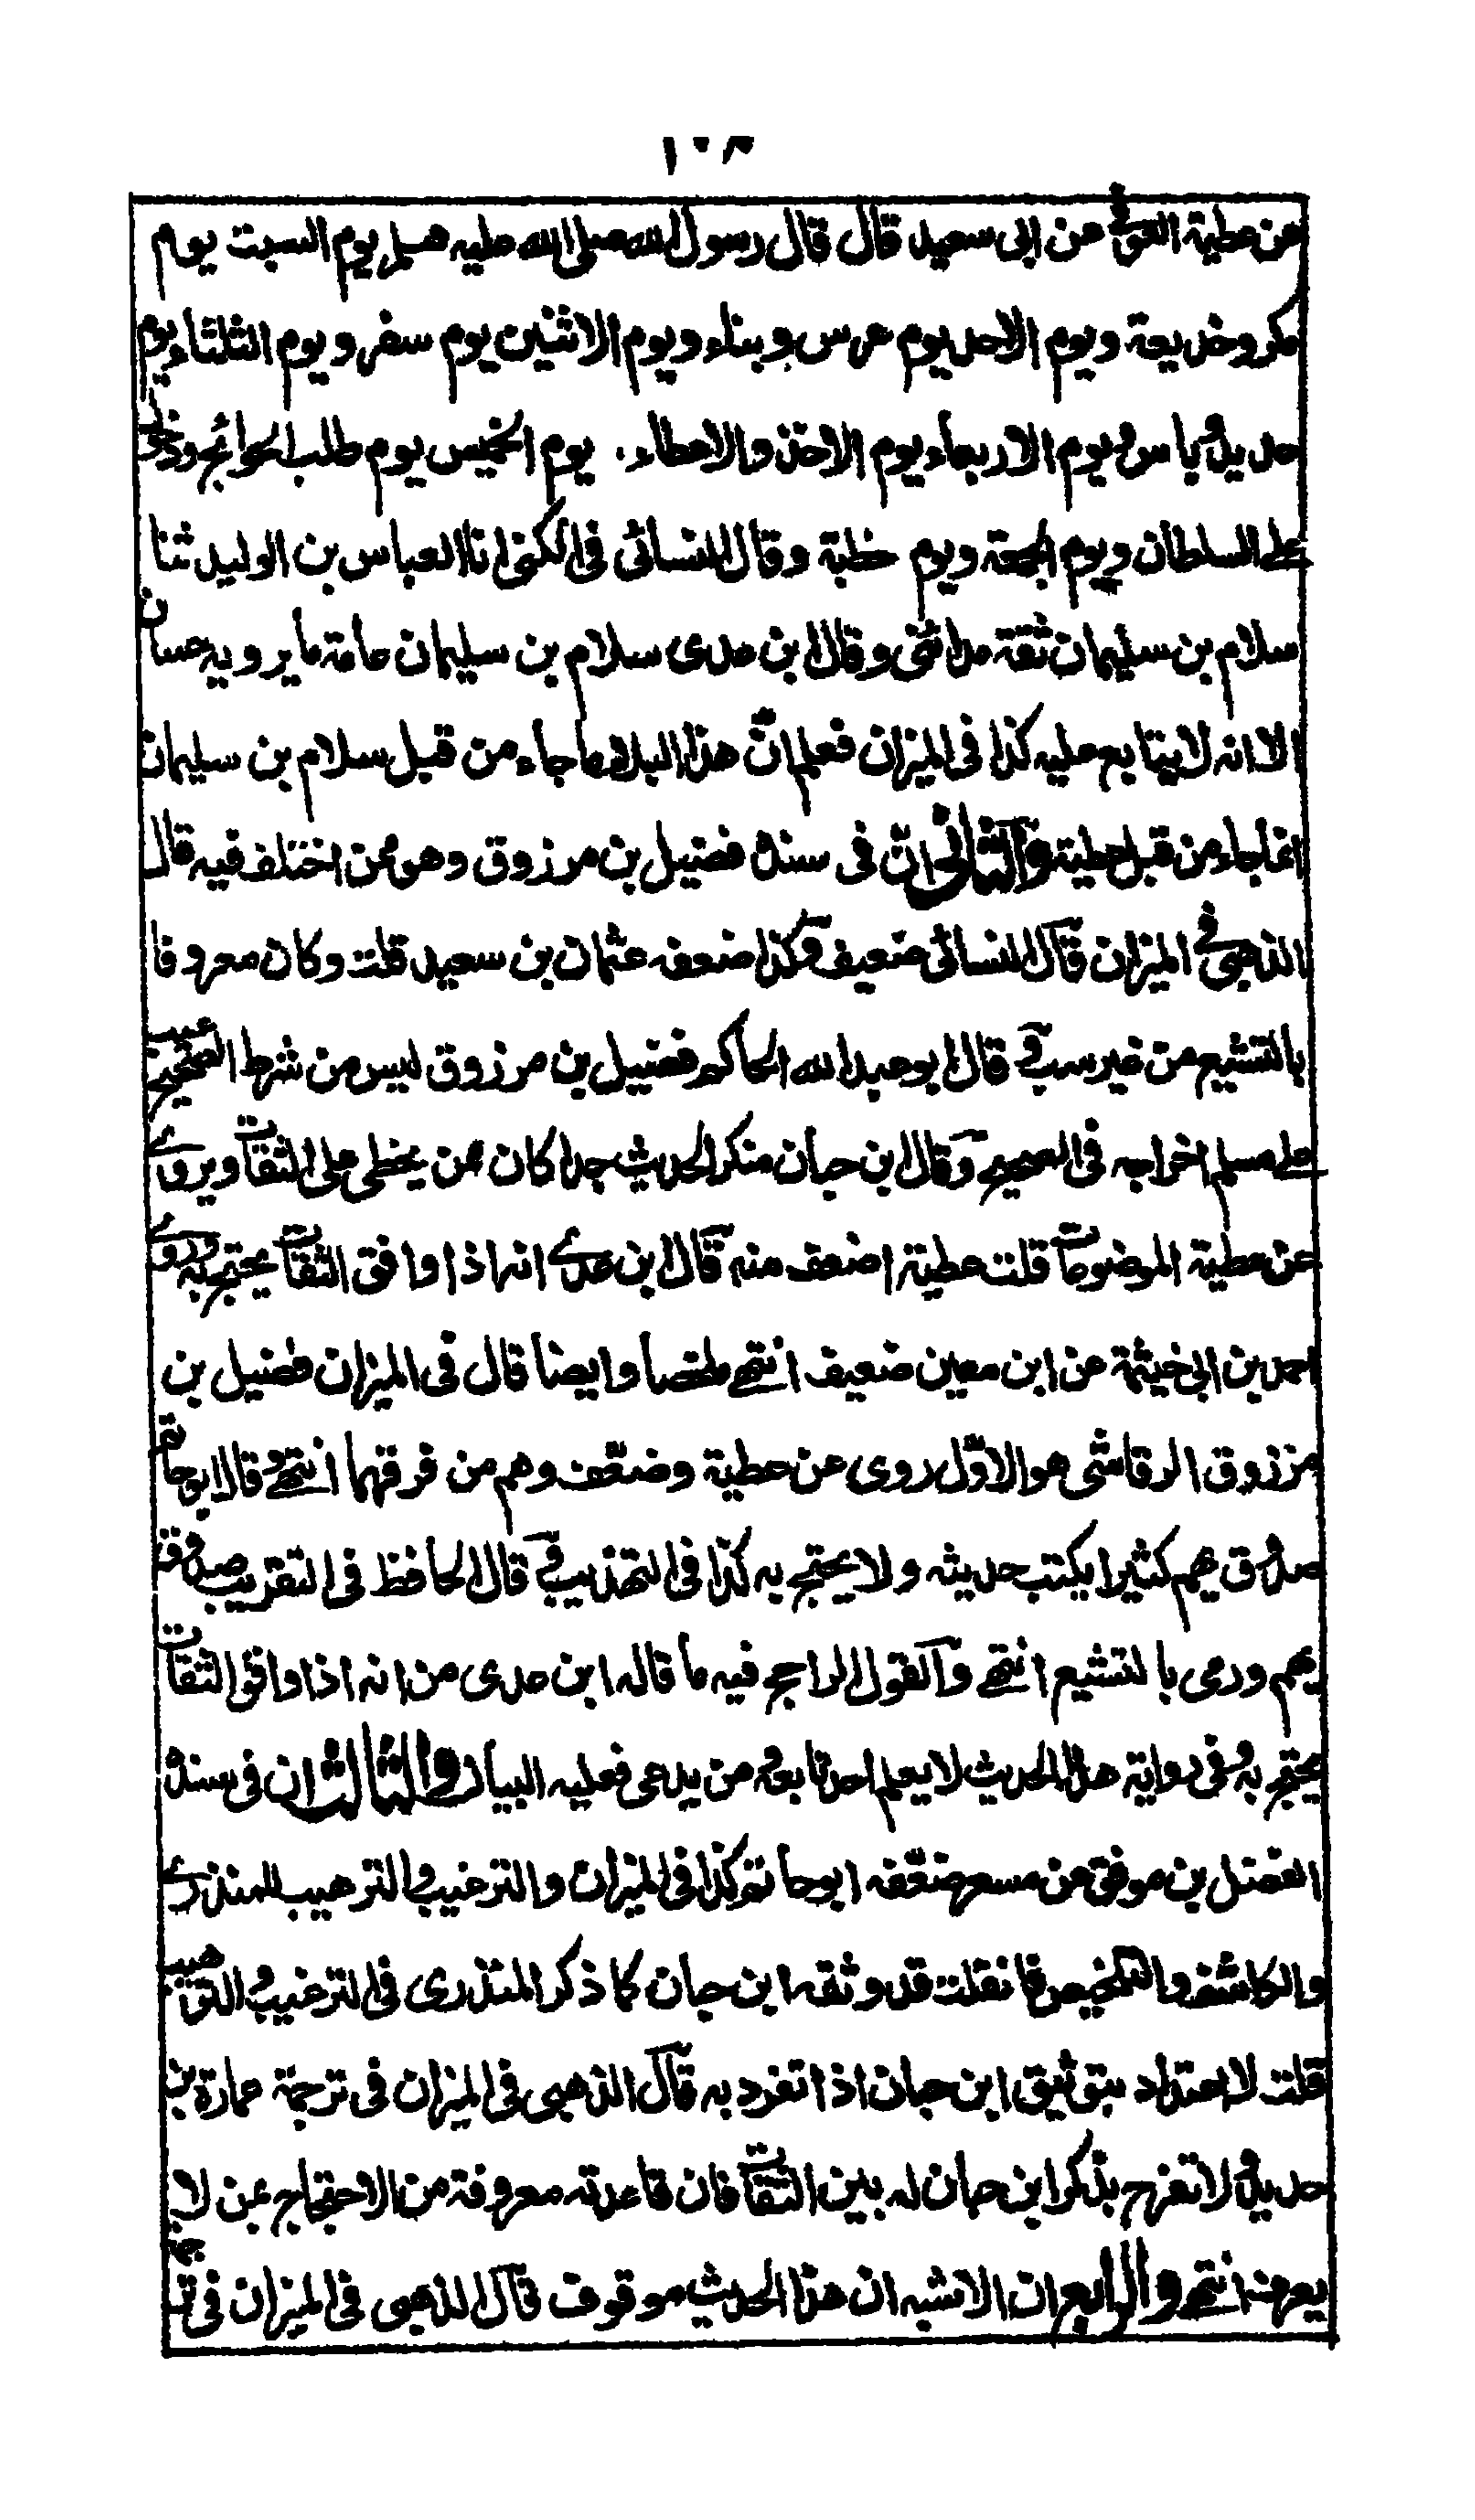 عن عطية العوفي عن ابى سعيد قال قال رسول الله صلى الله عليه وسلم يوم السبت يوم
مكر وخديعة ويوم الاحد يوم غرس وبناء ويوم الاثنين يوم سفر ويوم الثلثاء يوم
حديد وباس ويوم الاربعاء يوم الاخذ والاعطاء. يوم الخميس يوم طلب الحوائج ودخول
على السلطان ويوم الجمعة ويوم خطبة وقال النسائى فى الكنى انا العباس بن الوليد ثنا
سلام بن سليمان ثقة مدائنى وقال ابن عدى سلام بن سليمان عامة ما يرويه حسان
الا انه لا يتابع عليه كذا فى الميزان فعلم ان هذا البلاء ما جاء من قبل سلام بن سليمان
انما جاء من قبل عطية والثانى ان فى سنده فضيل بن مرزوق وهو ممن اختلف فيه قال
الذهبى فى الميزان قال النسائى ضعيف وكذا ضعفه عثمان بن سعيد قلت وكان معروفا
بالتشيع من غير سب قال ابو عبد الله الحاكم فضيل بن مرزوق ليس من شرط الصحيح
على مسلم اخراجه فى الصحيح وقال ابن حبان منكر الحديث جدا كان ممن يخطى على الثقات ويروى
عن عطية الموضوعات قلت عطية اضعف منه قال ابن عدى انه اذا وافق الثقات يحتج به وروى
احمد بن ابى خيثمة عن ابن معين ضعيف انتهى ملخصا وايضا قال فى الميزان فضيل بن
مرزوق الرقاشى هو الاول روى عن عطية وضعف وهم من فرقهما انتهى قال ابو حاتم
صدوق يهم كثيرا يكتب حديثه ولا يحتج به كذا فى التهذيب قال الحافظ فى التقريب صدوق
يهم ورمى بالتشيع انتهى والقول الراجح فيه ما قاله ابن عدى من انه اذا وافق الثقات
يحتج به وفى رواية هذا الحديث لا يعلم احد تابعه من يدعى فعليه البيان والثالث ان فى سنده
الفضل بن موفق عن مسعر ضعفه ابو حاتم كذا فى الميزان والترغيب والترهيب للمنذرى
والكاشف والتلخيص فان قلت قد وثقه ابن حبان كما ذكر المنذرى فى الترغيب والترهيب
قلت لا اعتداد بتوثيق ابن حبان اذا تفرد به قال الذهبى فى الميزان فى ترجمة عمارة بن
حديد لا تفرح بذكر ابن حبان له بين الثقات فان قاعدته معروفة من الاحتجاج عن لا
يعرف انتهى والرابع ان الاشبه ان هذا الحديث موقوف قال الذهبى فى الميزان فى ترجمة